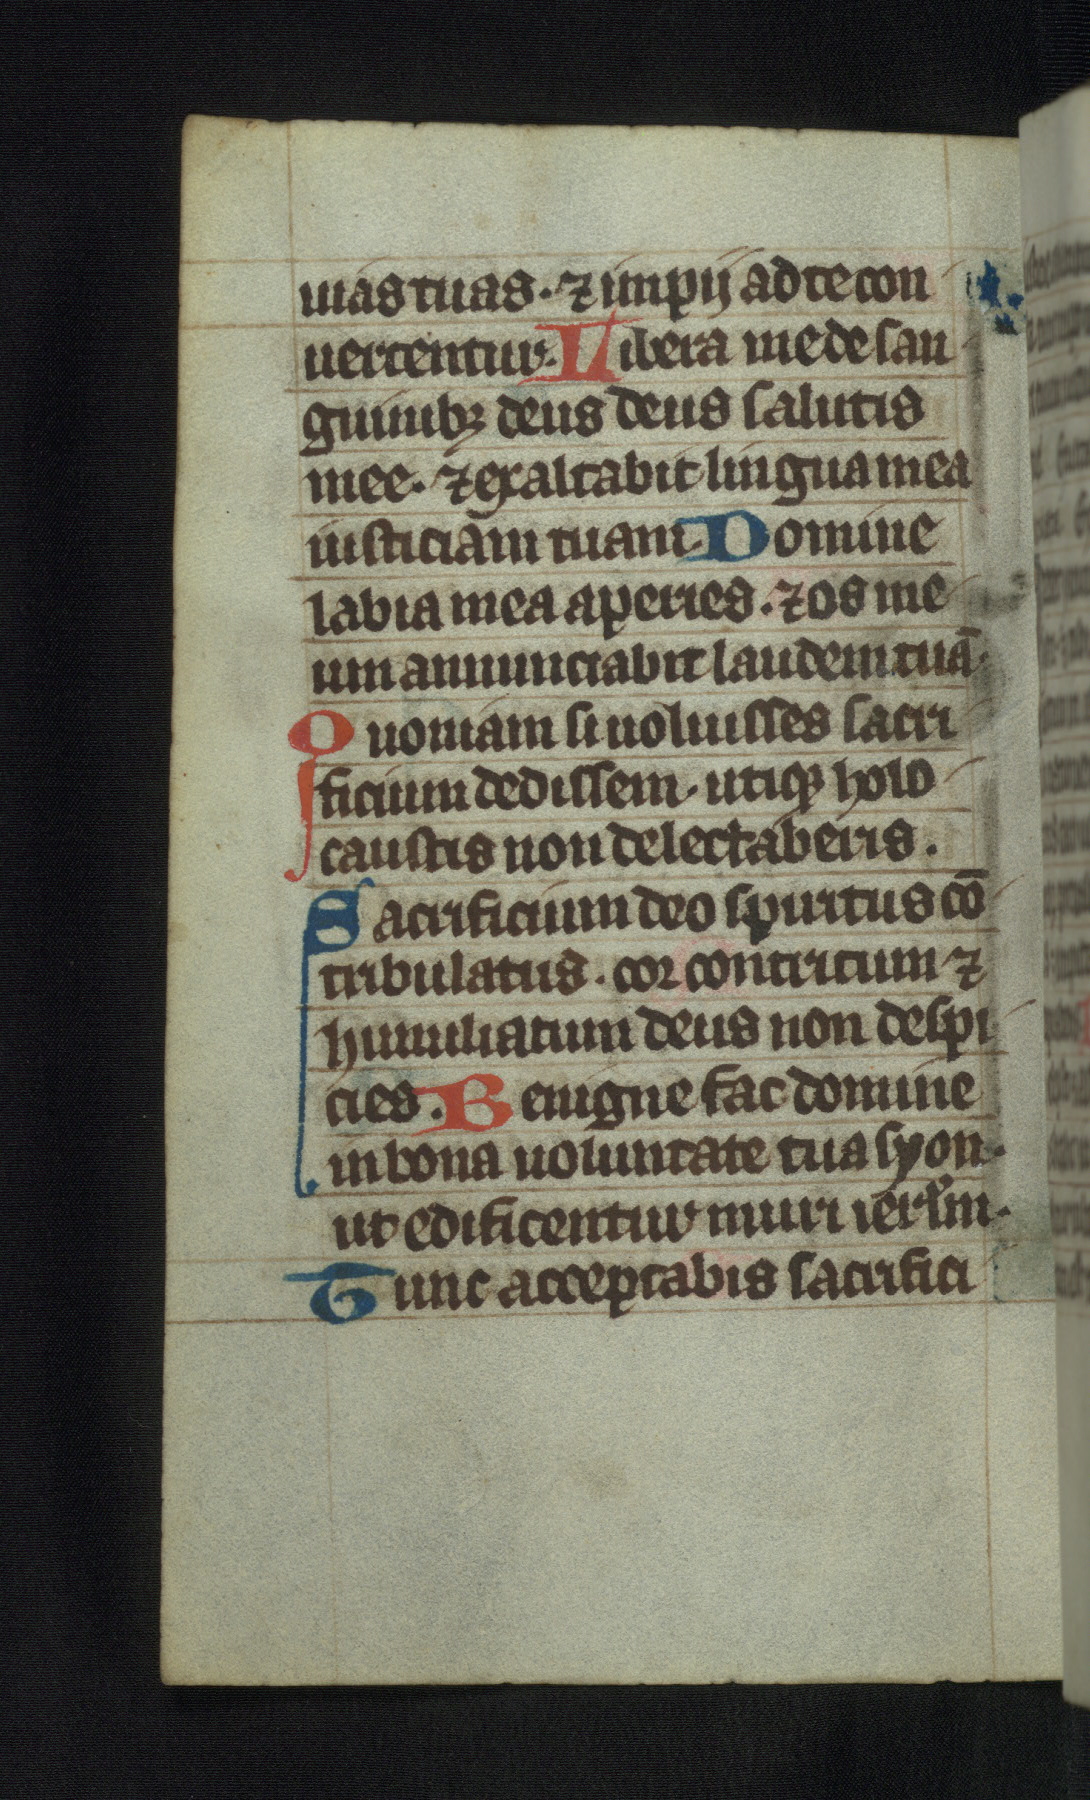 uias tuas. ⁊ impij ad te con
uertentur. Libera me de san
guinibꝫ deus deus salutis
mee. ⁊ exaltabit lingua mea
iusticiam tuam. Domine
labia mea aperies. ⁊ os me
um annunciabit laudem tuā.
Quoniam si uoluisses sacri
ficium dedissem. utiqꝫ holo
caustis non delectaberis.
Sacrificium deo spiritus cō
tribulatus. cor contritum ⁊
humiliatum deus non despi
cies. Benigne fac domine
in bona uoluntate tua syon.
ut edificentur muri ierl̄m.
Tunc acceptabis sacrifici